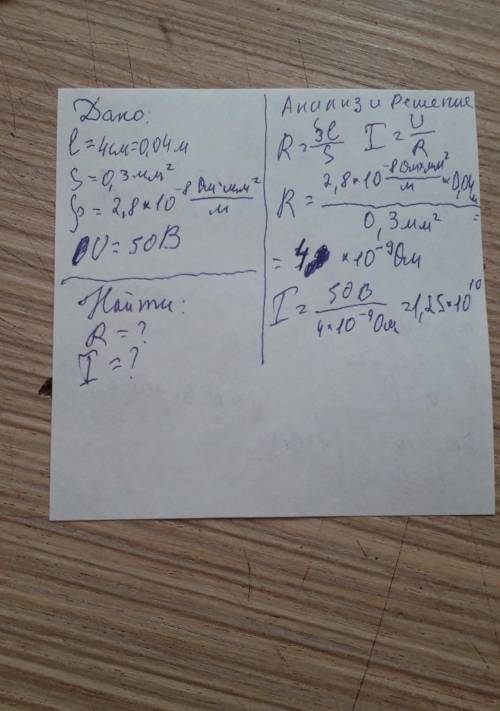 Дано:
l = 4см = 0,04м
S = 0,3мм²
ρ = 2,8*10⁻⁸ Ом*мм²/м
U = 50В
Найти:
R = ?
I = ?
Анализ и решение
R = ρl/S I = U/R
R = 2,8*10⁻⁸ Ом*мм²/м * 0,04м / 0,3мм² =
= 4 *10⁻⁹ Ом
I = 50В / 4*10⁻⁹ Ом = 1,25*10¹⁰